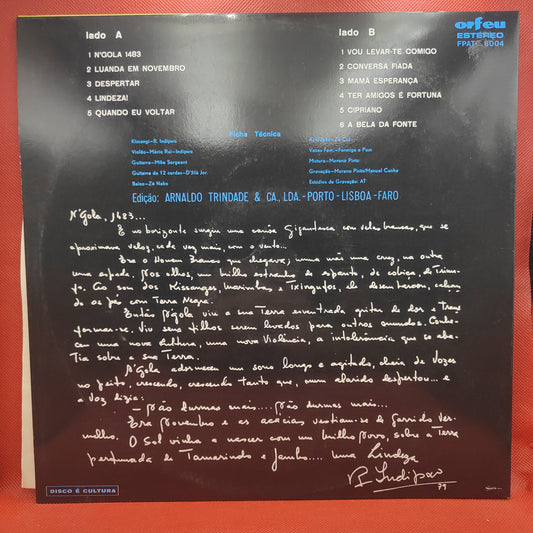 orfeu
ESTÉREO
FPAT 6004
lado A
1 N'GOLA 1483
2 LUANDA EM NOVEMBRO
3 DESPERTAR
4 LINDEZA!
5 QUANDO EU VOLTAR
lado B
1 VOU LEVAR-TE COMIGO
2 CONVERSA FIADA
3 MAMÃ ESPERANÇA
4 TER AMIGOS É FORTUNA
5 CIPRIANO
6 A BELA DA FONTE
Ficha Técnica
Kissangi-R. Indipwo
Violão-Mário Rui-Indipwo
Guitarra-Mike Sergeant
Guitarra de 12 cordas-D'Silá Jor.
Baixo-Zé Nabo
Vozes Fem.-Formiga e Pam
Mistura-Moreno Pinto
Gravação-Moreno Pinto/Manuel Cunha
Estúdios de Gravação: AT
Edição: ARNALDO TRINDADE & CA., LDA.-PORTO-LISBOA-FARO
N'Gola, 1483...
E no horizonte surgiu uma canôa Gigantesca com velas brancas, que se
aproximava veloz, cada vez mais, com o vento...
Era o Homem Branco que chegava; numa mão uma cruz, na outra
uma espada. Nos olhos, um brilho estranho de espanto, de cobiça, de Triun-
fo. Ao som dos Kissanges, marimbas e Txingufos, ali desembarcou, calcan-
do os pés com Terra Negra.
Então N'Gola viu a sua Terra esventrada gritar de dor e Trans
formar-se. Viu seus filhos serem levados para outros mundos. Conhe-
ceu uma nova cultura, uma nova Violência, a intolerância que se aba-
tia sobre a sua Terra.
N'Gola adormeceu um sono longo e agitado, cheio de Vozes
no peito, crescendo, crescendo tanto que, num alarido despertou... e
a voz dizia:
— Não durmas mais.... Não durmas mais...
Era Novembro e as acácias vestiam-se de garrido Ver-
melho. O Sol vinha a nascer com um brilho novo, sobre a Terra
perfumada de Tamarindo e Jambo.... uma Lindeza
R Indipwo
79
DISCO É CULTURA